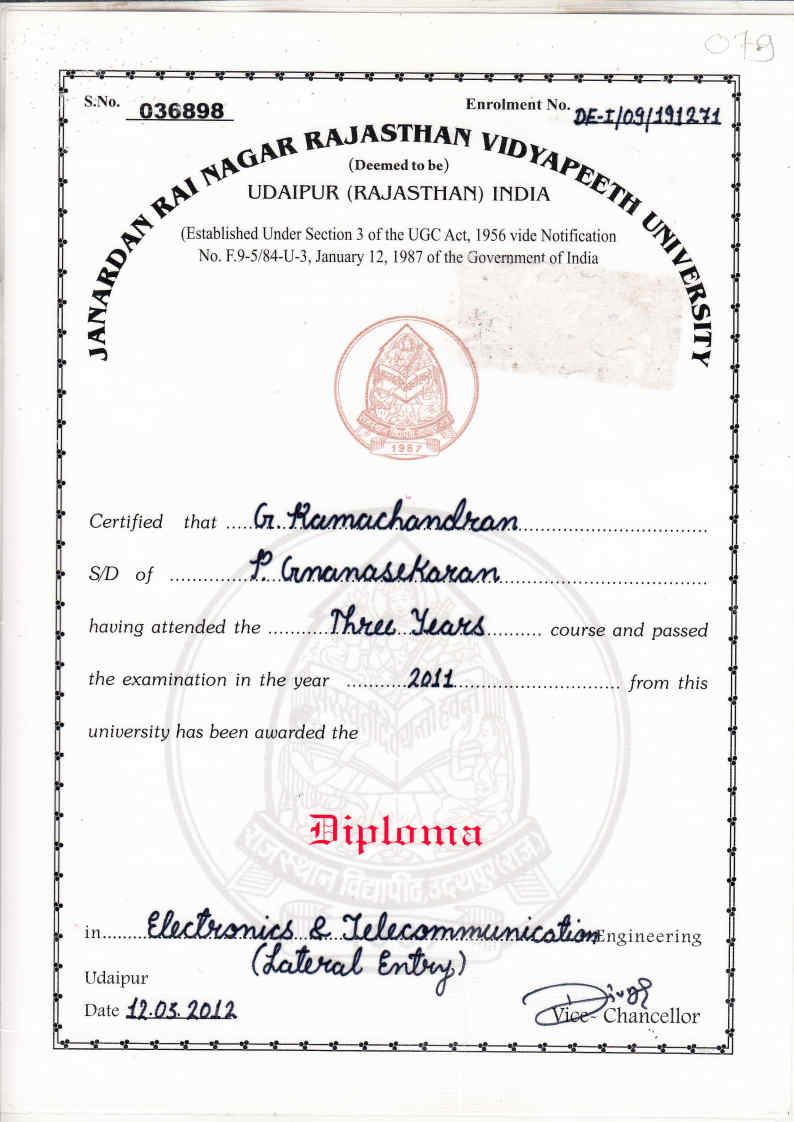 079
S.No. 036898
Enrolment No. DE-I/09/191271
JANARDAN RAI NAGAR RAJASTHAN VIDYAPEETH UNIVERSITY
(Deemed to be)
UDAIPUR (RAJASTHAN) INDIA
(Established Under Section 3 of the UGC Act, 1956 vide Notification
No. F.9-5/84-U-3, January 12, 1987 of the Government of India
1987
Certified that .....G. Ramachandran................................
S/D of .............P. Gnanasekaran....................................
having attended the ...........Three Years.......... course and passed
the examination in the year ...........2011............................... from this
university has been awarded the
Diploma
राजस्थान विद्यापीठ, उदयपुर (राज.)
in........Electronics & Telecommunication Engineering
(Lateral Entry)
Udaipur
Date 12.03.2012
Vice- Chancellor